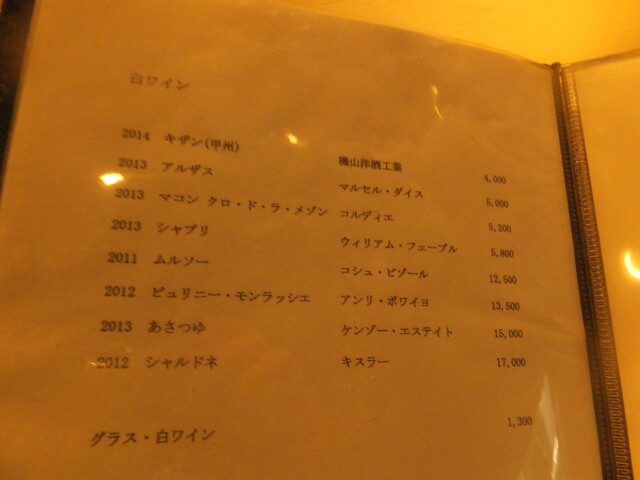 白ワイン
2014 キザン(甲州) 機山洋酒工業 4,000
2013 アルザス マルセル・ダイス 5,000
2013 マコン クロ・ド・ラ・メゾン コルディエ 5,200
2013 シャブリ ウィリアム・フェーブル 5,800
2011 ムルソー コシュ・ビゾール 12,500
2012 ピュリニー・モンラッシェ アンリ・ボワイヨ 13,500
2013 あさつゆ ケンゾー・エステイト 15,000
2012 シャルドネ キスラー 17,000
グラス・白ワイン 1,300